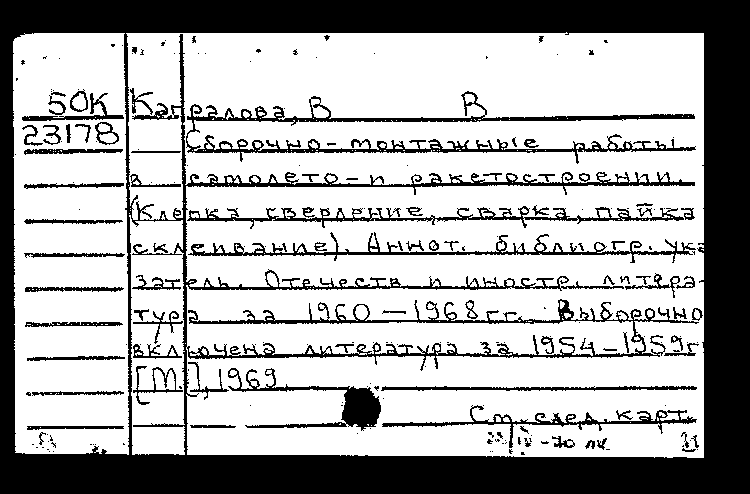 50К Капралова, В В
23178 Сборочно-монтажные работы
в самолето-и ракетостроении.
(Клепка, сверление, сварка, пайка
склеивание). Аннот. библиогр. ука
затель. Отечеств и иностр. литера-
тура за 1960—1968гг. Выборочно
включена литература за 1954-1959г
[М.], 1969.
См. след. карт.